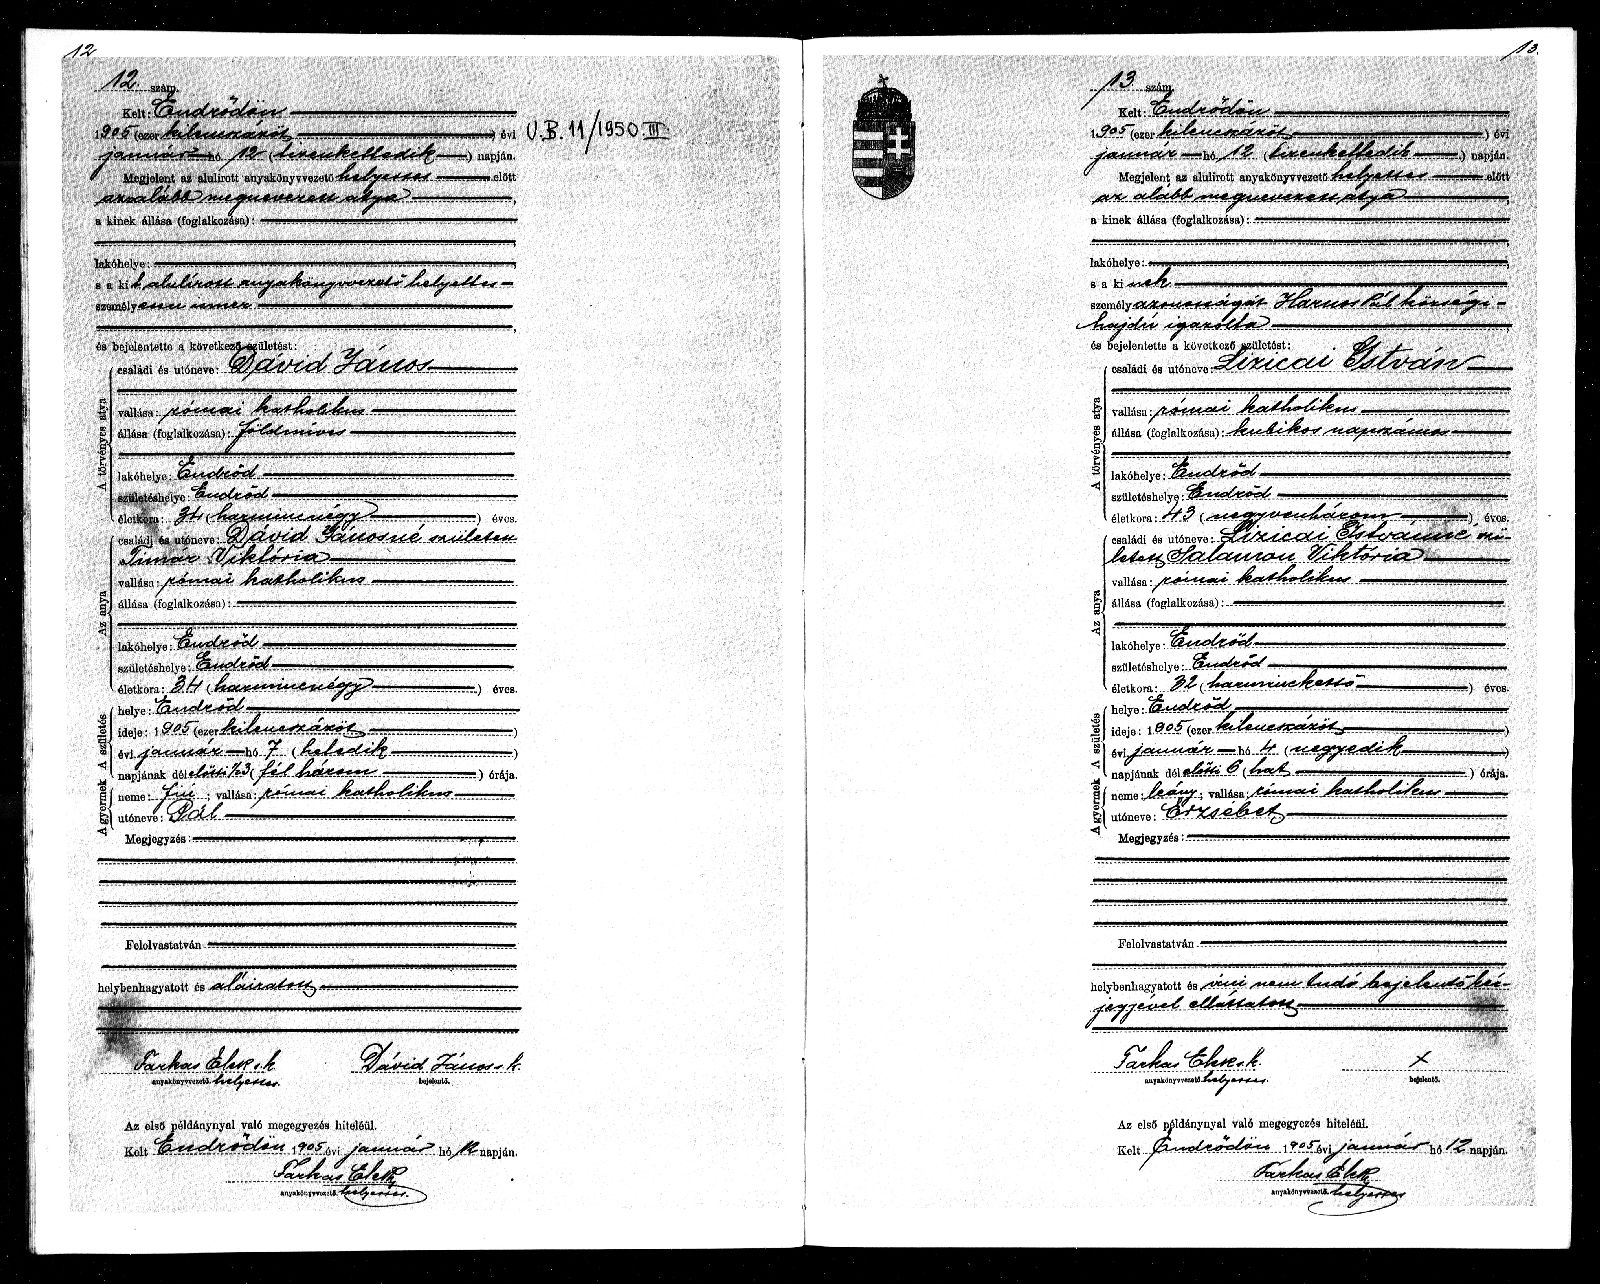 12
12 szám.
Kelt: Endrődön
1905 (ezer kilencszázöt) évi
január hó 12 (tizenkettedik) napján.
V.B. 11/1950 III
Megjelent az alulírott anyakönyvvezető helyettes előtt
az alább megnevezett atya,
a kinek állása (foglalkozása):
lakóhelye:
s a kit alulírott anyakönyvvezető helyettes
személyesen ismer
és bejelentette a következő születést:
A törvényes atya
családi és utóneve: Dávid János
vallása: római katholikus
állása (foglalkozása): földmíves
lakóhelye: Endrőd
születéshelye: Endrőd
életkora: 34 (harmincnégy) éves.
Az anya
családi és utóneve: Dávid Jánosné született
Tímár Viktória
vallása: római katholikus
állása (foglalkozása):
lakóhelye: Endrőd
születéshelye: Endrőd
életkora: 34 (harmincnégy) éves.
A születés
helye: Endrőd
ideje: 1905 (ezer kilencszázöt)
évi január hó 7 (hetedik)
napjának délelőtti 1/2 3 (fél három) órája.
A gyermek
neme: fiú; vallása: római katholikus
utóneve: Pál
Megjegyzés:
Felolvastatván
helybenhagyatott és aláiratott
Farkas Elek s. k.
anyakönyvvezető helyettes.
Dávid János s. k.
bejelentő.
Az első példánynyal való megegyezés hiteléül.
Kelt Endrődön 1905 évi január hó 12 napján.
Farkas Elek
anyakönyvvezető helyettes.
13.
13 szám.
Kelt: Endrődön
1905 (ezer kilencszázöt) évi
január hó 12 (tizenkettedik) napján.
Megjelent az alulírott anyakönyvvezető helyettes előtt
az alább megnevezett atya,
a kinek állása (foglalkozása):
lakóhelye:
s a kinek
személyazonosságát Harnos Pál községi
hajdú igazolta
és bejelentette a következő születést:
A törvényes atya
családi és utóneve: Lizicai István
vallása: római katholikus
állása (foglalkozása): kubikos napszámos
lakóhelye: Endrőd
születéshelye: Endrőd
életkora: 43 (negyvenhárom) éves.
Az anya
családi és utóneve: Lizicai Istvánné szü-
letett Salamon Viktória
vallása: római katholikus
állása (foglalkozása):
lakóhelye: Endrőd
születéshelye: Endrőd
életkora: 32 (harminckettő) éves.
A születés
helye: Endrőd
ideje: 1905 (ezer kilencszázöt)
évi január hó 4 (negyedik)
napjának délelőtti 6 (hat) órája.
A gyermek
neme: leány; vallása: római katholikus
utóneve: Erzsébet
Megjegyzés:
Felolvastatván
helybenhagyatott és írni nem tudó bejelentő kéz-
jegyével elláttatott
Farkas Elek s. k.
anyakönyvvezető helyettes.
x
bejelentő.
Az első példánynyal való megegyezés hiteléül.
Kelt Endrődön 1905 évi január hó 12 napján.
Farkas Elek
anyakönyvvezető helyettes